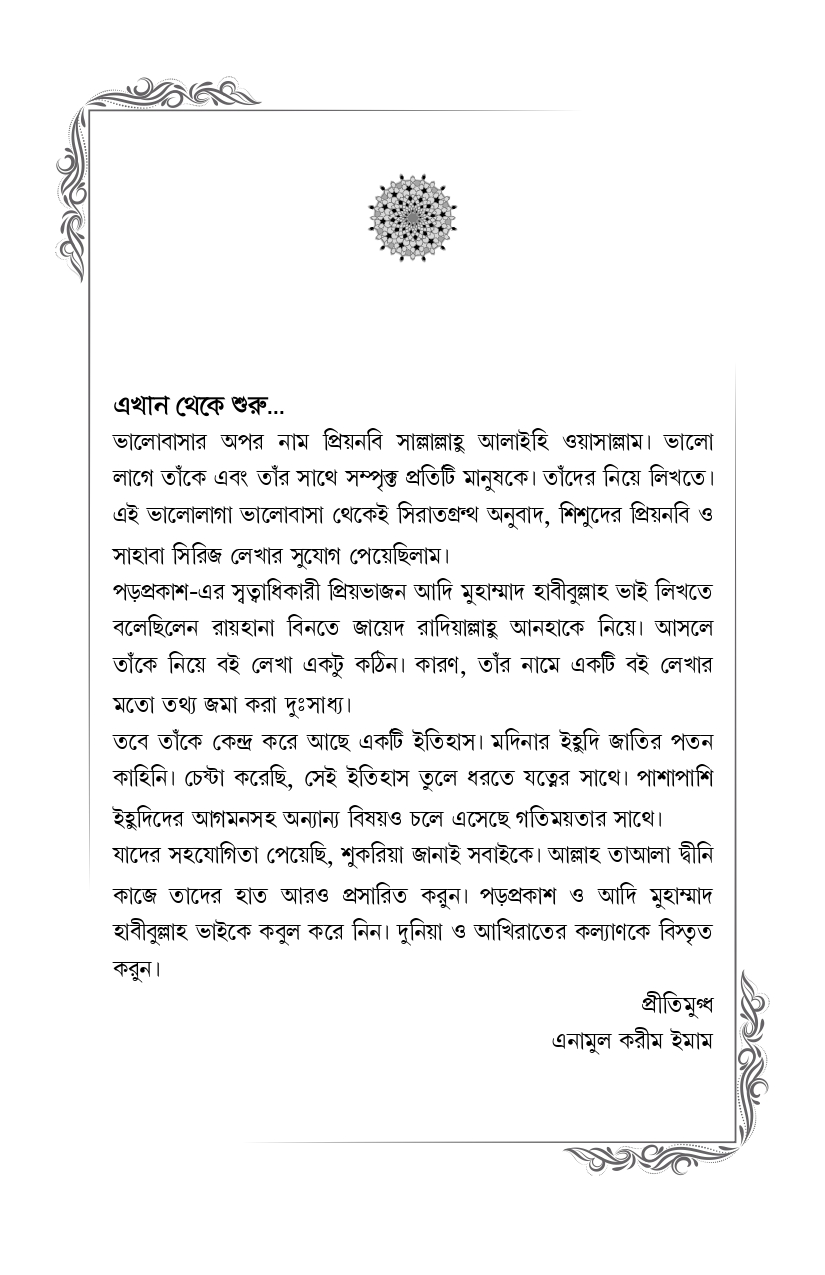 এখান থেকে শুরু...
ভালোবাসার অপর নাম প্রিয়নবি সাল্লাল্লাহু আলাইহি ওয়াসাল্লাম। ভালো
লাগে তাঁকে এবং তাঁর সাথে সম্পৃক্ত প্রতিটি মানুষকে। তাঁদের নিয়ে লিখতে।
এই ভালোলাগা ভালোবাসা থেকেই সিরাতগ্রন্থ অনুবাদ, শিশুদের প্রিয়নবি ও
সাহাবা সিরিজ লেখার সুযোগ পেয়েছিলাম।
পড়প্রকাশ-এর স্বত্বাধিকারী প্রিয়ভাজন আদি মুহাম্মাদ হাবীবুল্লাহ ভাই লিখতে
বলেছিলেন রায়হানা বিনতে জায়েদ রাদিয়াল্লাহু আনহাকে নিয়ে। আসলে
তাঁকে নিয়ে বই লেখা একটু কঠিন। কারণ, তাঁর নামে একটি বই লেখার
মতো তথ্য জমা করা দুঃসাধ্য।
তবে তাঁকে কেন্দ্র করে আছে একটি ইতিহাস। মদিনার ইহুদি জাতির পতন
কাহিনি। চেষ্টা করেছি, সেই ইতিহাস তুলে ধরতে যত্নের সাথে। পাশাপাশি
ইহুদিদের আগমনসহ অন্যান্য বিষয়ও চলে এসেছে গতিময়তার সাথে।
যাদের সহযোগিতা পেয়েছি, শুকরিয়া জানাই সবাইকে। আল্লাহ তাআলা দ্বীনি
কাজে তাদের হাত আরও প্রসারিত করুন। পড়প্রকাশ ও আদি মুহাম্মাদ
হাবীবুল্লাহ ভাইকে কবুল করে নিন। দুনিয়া ও আখিরাতের কল্যাণকে বিস্তৃত
করুন।
প্রীতিমুগ্ধ
এনামুল করীম ইমাম